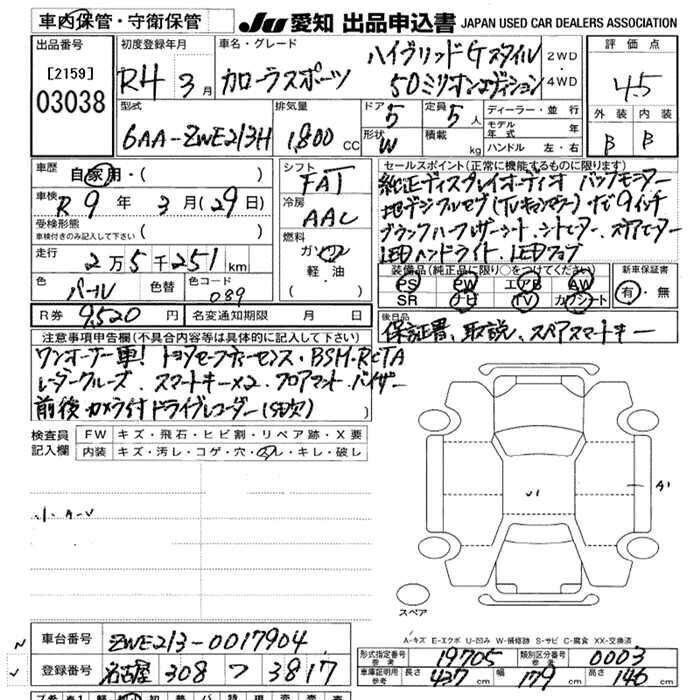 車内保管・守衛保管
JU 愛知 出品申込書 JAPAN USED CAR DEALERS ASSOCIATION
出品番号 [2159] 03038
初度登録年月 R4 3月
車名・グレード カローラスポーツ ハイブリッドGスタイル
50ミリオンエディション
2WD 4WD
評価点 4.5
外装 内装
B B
型式 6AA-ZWE213H
排気量 1,800 CC
ドア 5 形状 W
定員 5人 積載 kg
ディーラー・並行
モデル年式
ハンドル 左・右
車歴 自家用・( )
車検 R9年3月(29日)
受検形態
車検付きのみ記入して下さい ( )
走行 2万5千251km
色 パール 色替 色コード 089
R券 9,520円 名変通知期限 月 日
シフト FAT
冷房 AAC
燃料 ガソリン
軽油
( )
セールスポイント(正常に機能するものに限ります)
純正ディスプレイオーディオ バックモニター
地デジフルセグ(TVキャンセラー) ナビ9インチ
ブラックハーフレザーシート、シートヒーター、ステアヒーター
LEDヘッドライト、LEDフォグ
装備品(純正品に限り○をつけてください)
PS PW エアB AW
SR ナビ TV カワシート
新車保証書
有・無
後日品
保証書、取説、スペアスマートキー
注意事項申告欄(不具合内容等は具体的に記入して下さい)
ワンオーナー車! トヨタセーフティーセンス・BSM・RCTA
レーダークルーズ、スマートキー×2、フロアマット、バイザー
前後カメラ付ドライブレコーダー(SD欠)
検査員記入欄
FW キズ・飛石・ヒビ割・リペア跡・X要
内装 キズ・汚レ・コゲ・穴・スレ・キレ・破レ
小 A-U
U1
A1
スペア
A-キズ E-エクボ U-凹み W-補修跡 S-サビ C-腐食 XX-交換済
車台番号 ZWE213-0017904
登録番号 名古屋 308 つ 3817
形式指定番号 参考 19705 類別区分番号 参考 0003
車庫証明用 参考 長さ 437cm 幅 179cm 高さ 146cm